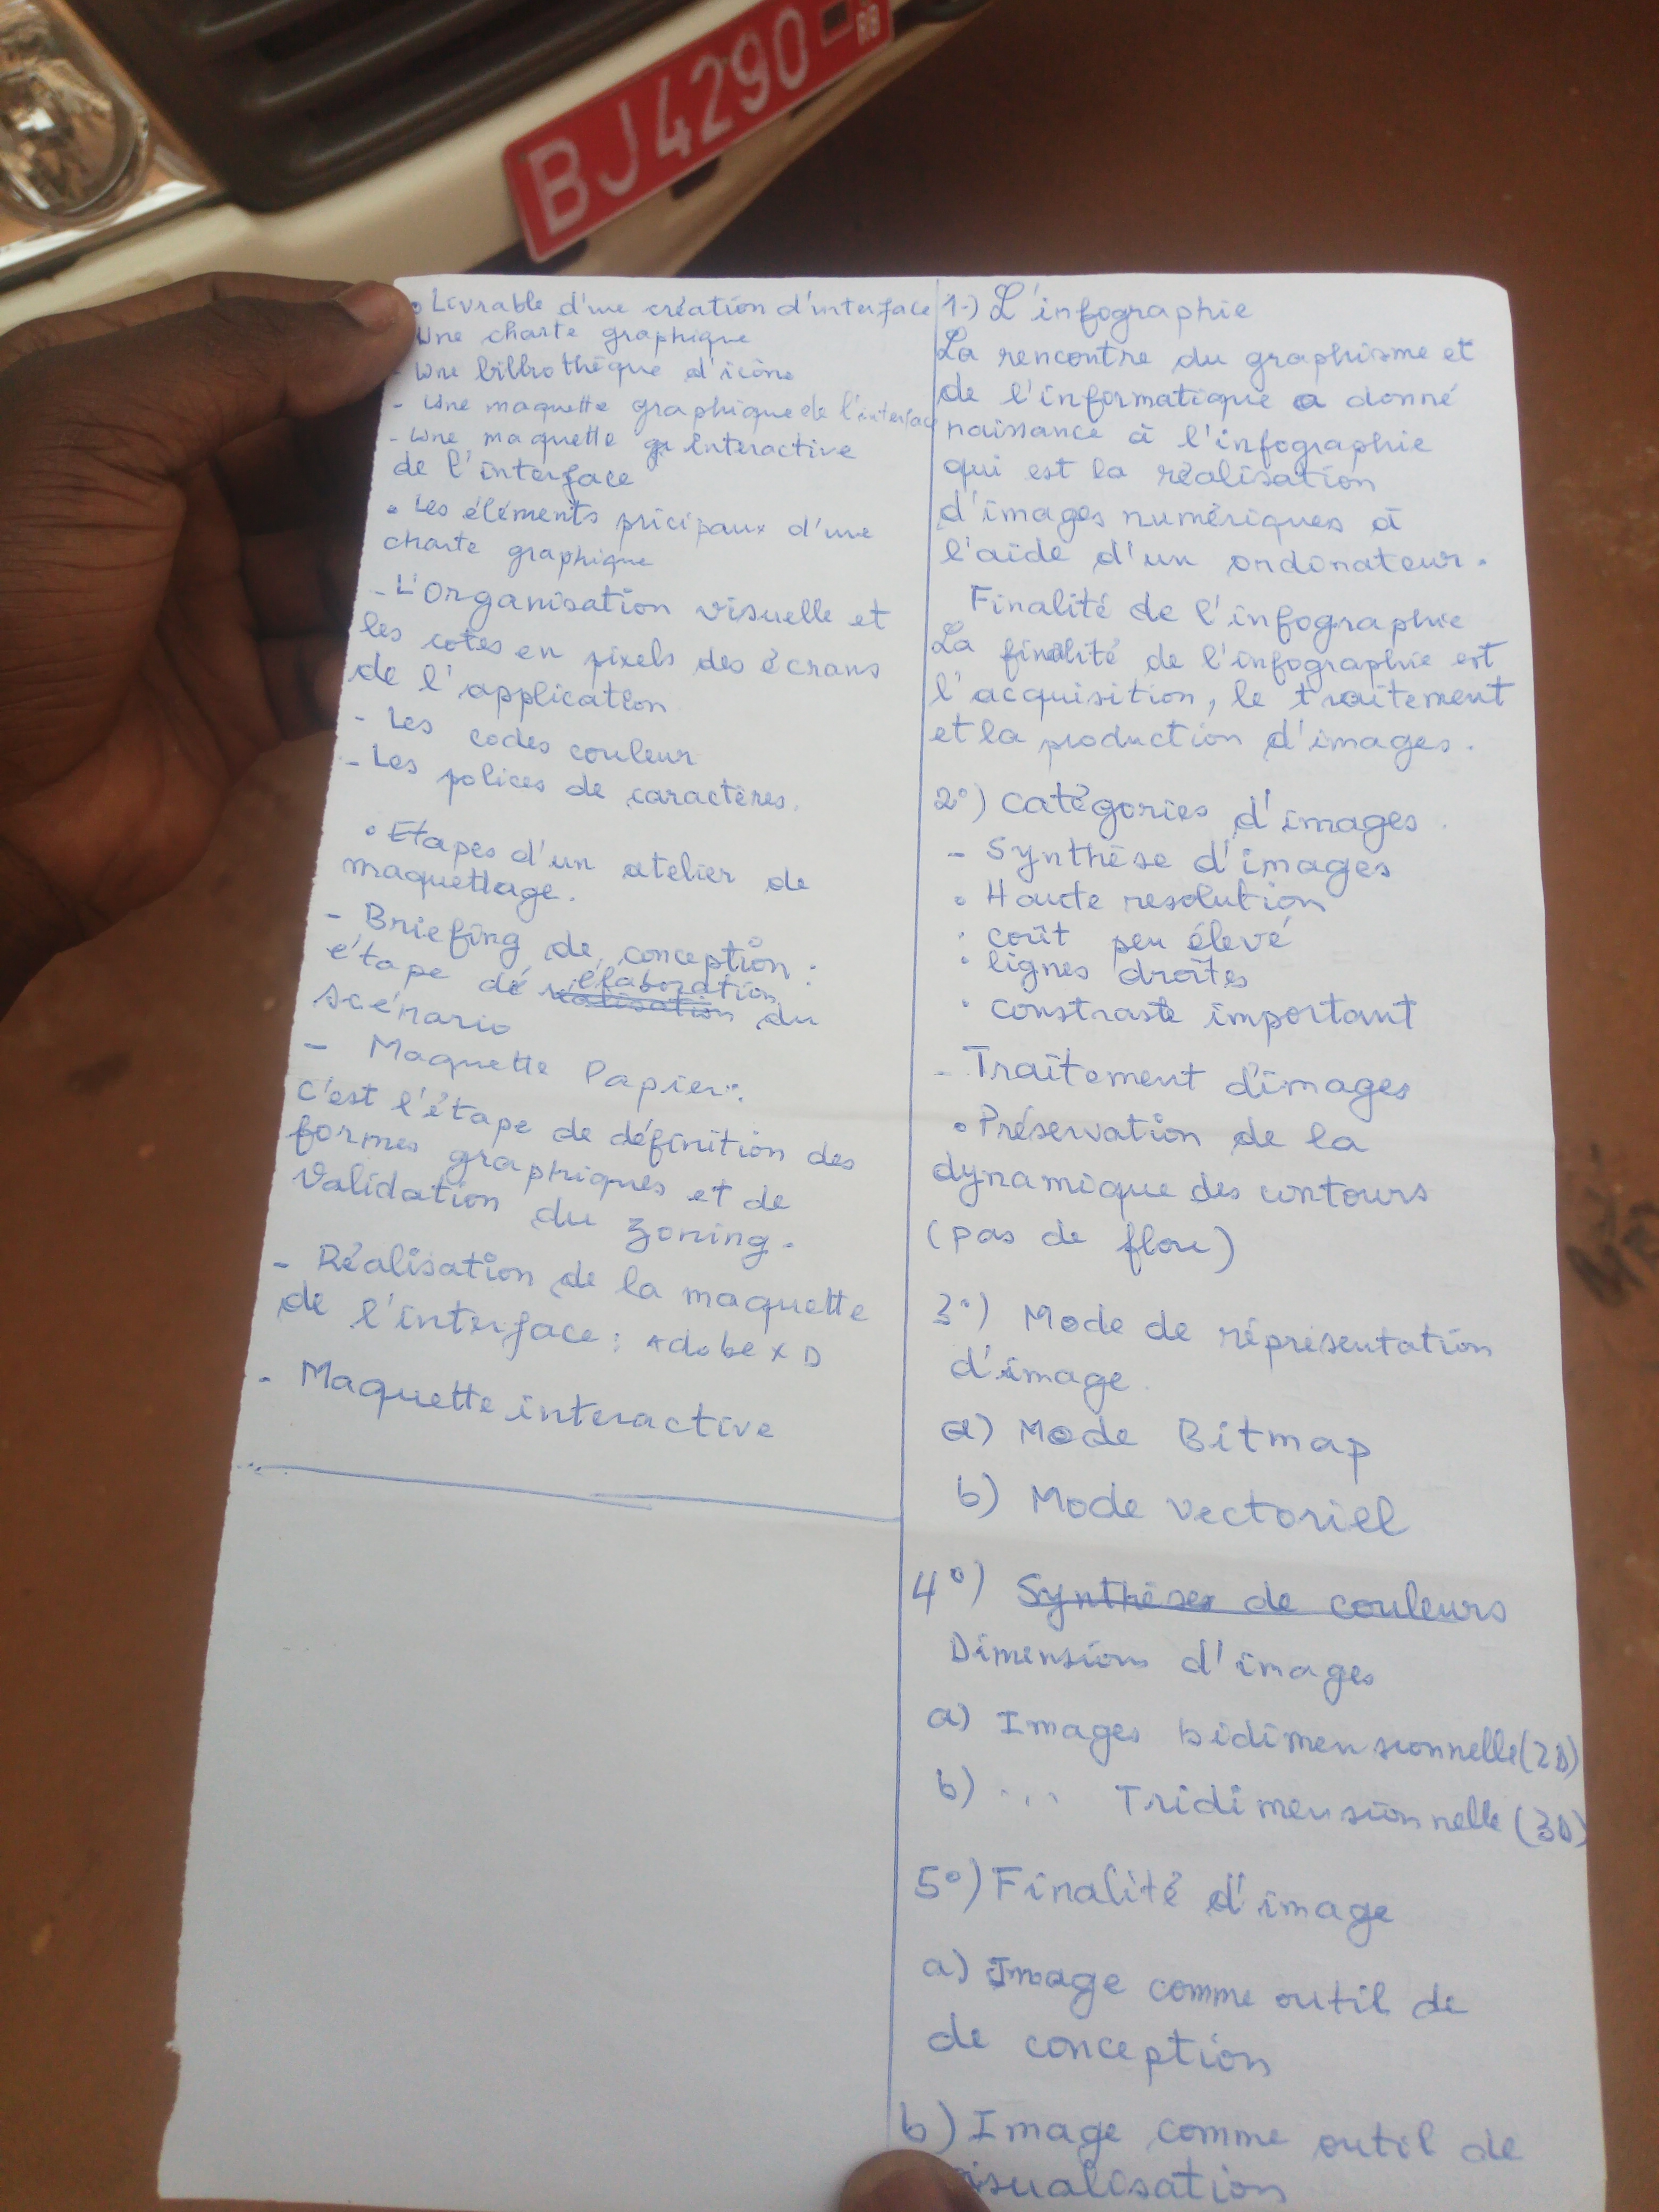 BJ4290-RB
• Livrable d'une création d'interface
Une charte graphique
- Une billiothèque d'icône
- Une maquette graphique de l'interface
- Une maquette gr interactive
de l'interface
• Les éléments pricipaux d'une
charte graphique
- L'Organisation visuelle et
les cotes en pixels des écrans
de l'application
- Les codes couleur
- Les polices de caractères.
• Etapes d'un atelier de
maquettage.
- Briefing de conception :
étape dé élaboration du
scénario
- Maquette Papier :
C'est l'étape de définition des
formes graphiques et de
Validation du zoning.
- Réalisation de la maquette
de l'interface : Adobe XD
- Maquette interactive
1-) L'infographie
La rencontre du graphisme et
de l'informatique a donné
naissance à l'infographie
qui est la réalisation
d'images numériques à
l'aide d'un ordinateur.
Finalité de l'infographie
La finalité de l'infographie est
l'acquisition, le traitement
et la production d'images.
2°) Catégories d'images.
- Synthèse d'images
• Haute resolution
• coût peu élevé
• lignes droites
• constraste important
- Traitement d'images
• Préservation de la
dynamique des contours
(pas de flou)
3°) Mode de réprésentation
d'image
a) Mode Bitmap
b) Mode vectoriel
4°) Synthèses de couleurs
Dimensions d'images
a) Images bidimensionnelle (2D)
b) ... Tridimensionnelle (3D)
5°) Finalité d'image
a) Image comme outil de
de conception
b) Image comme outil de
visualisation